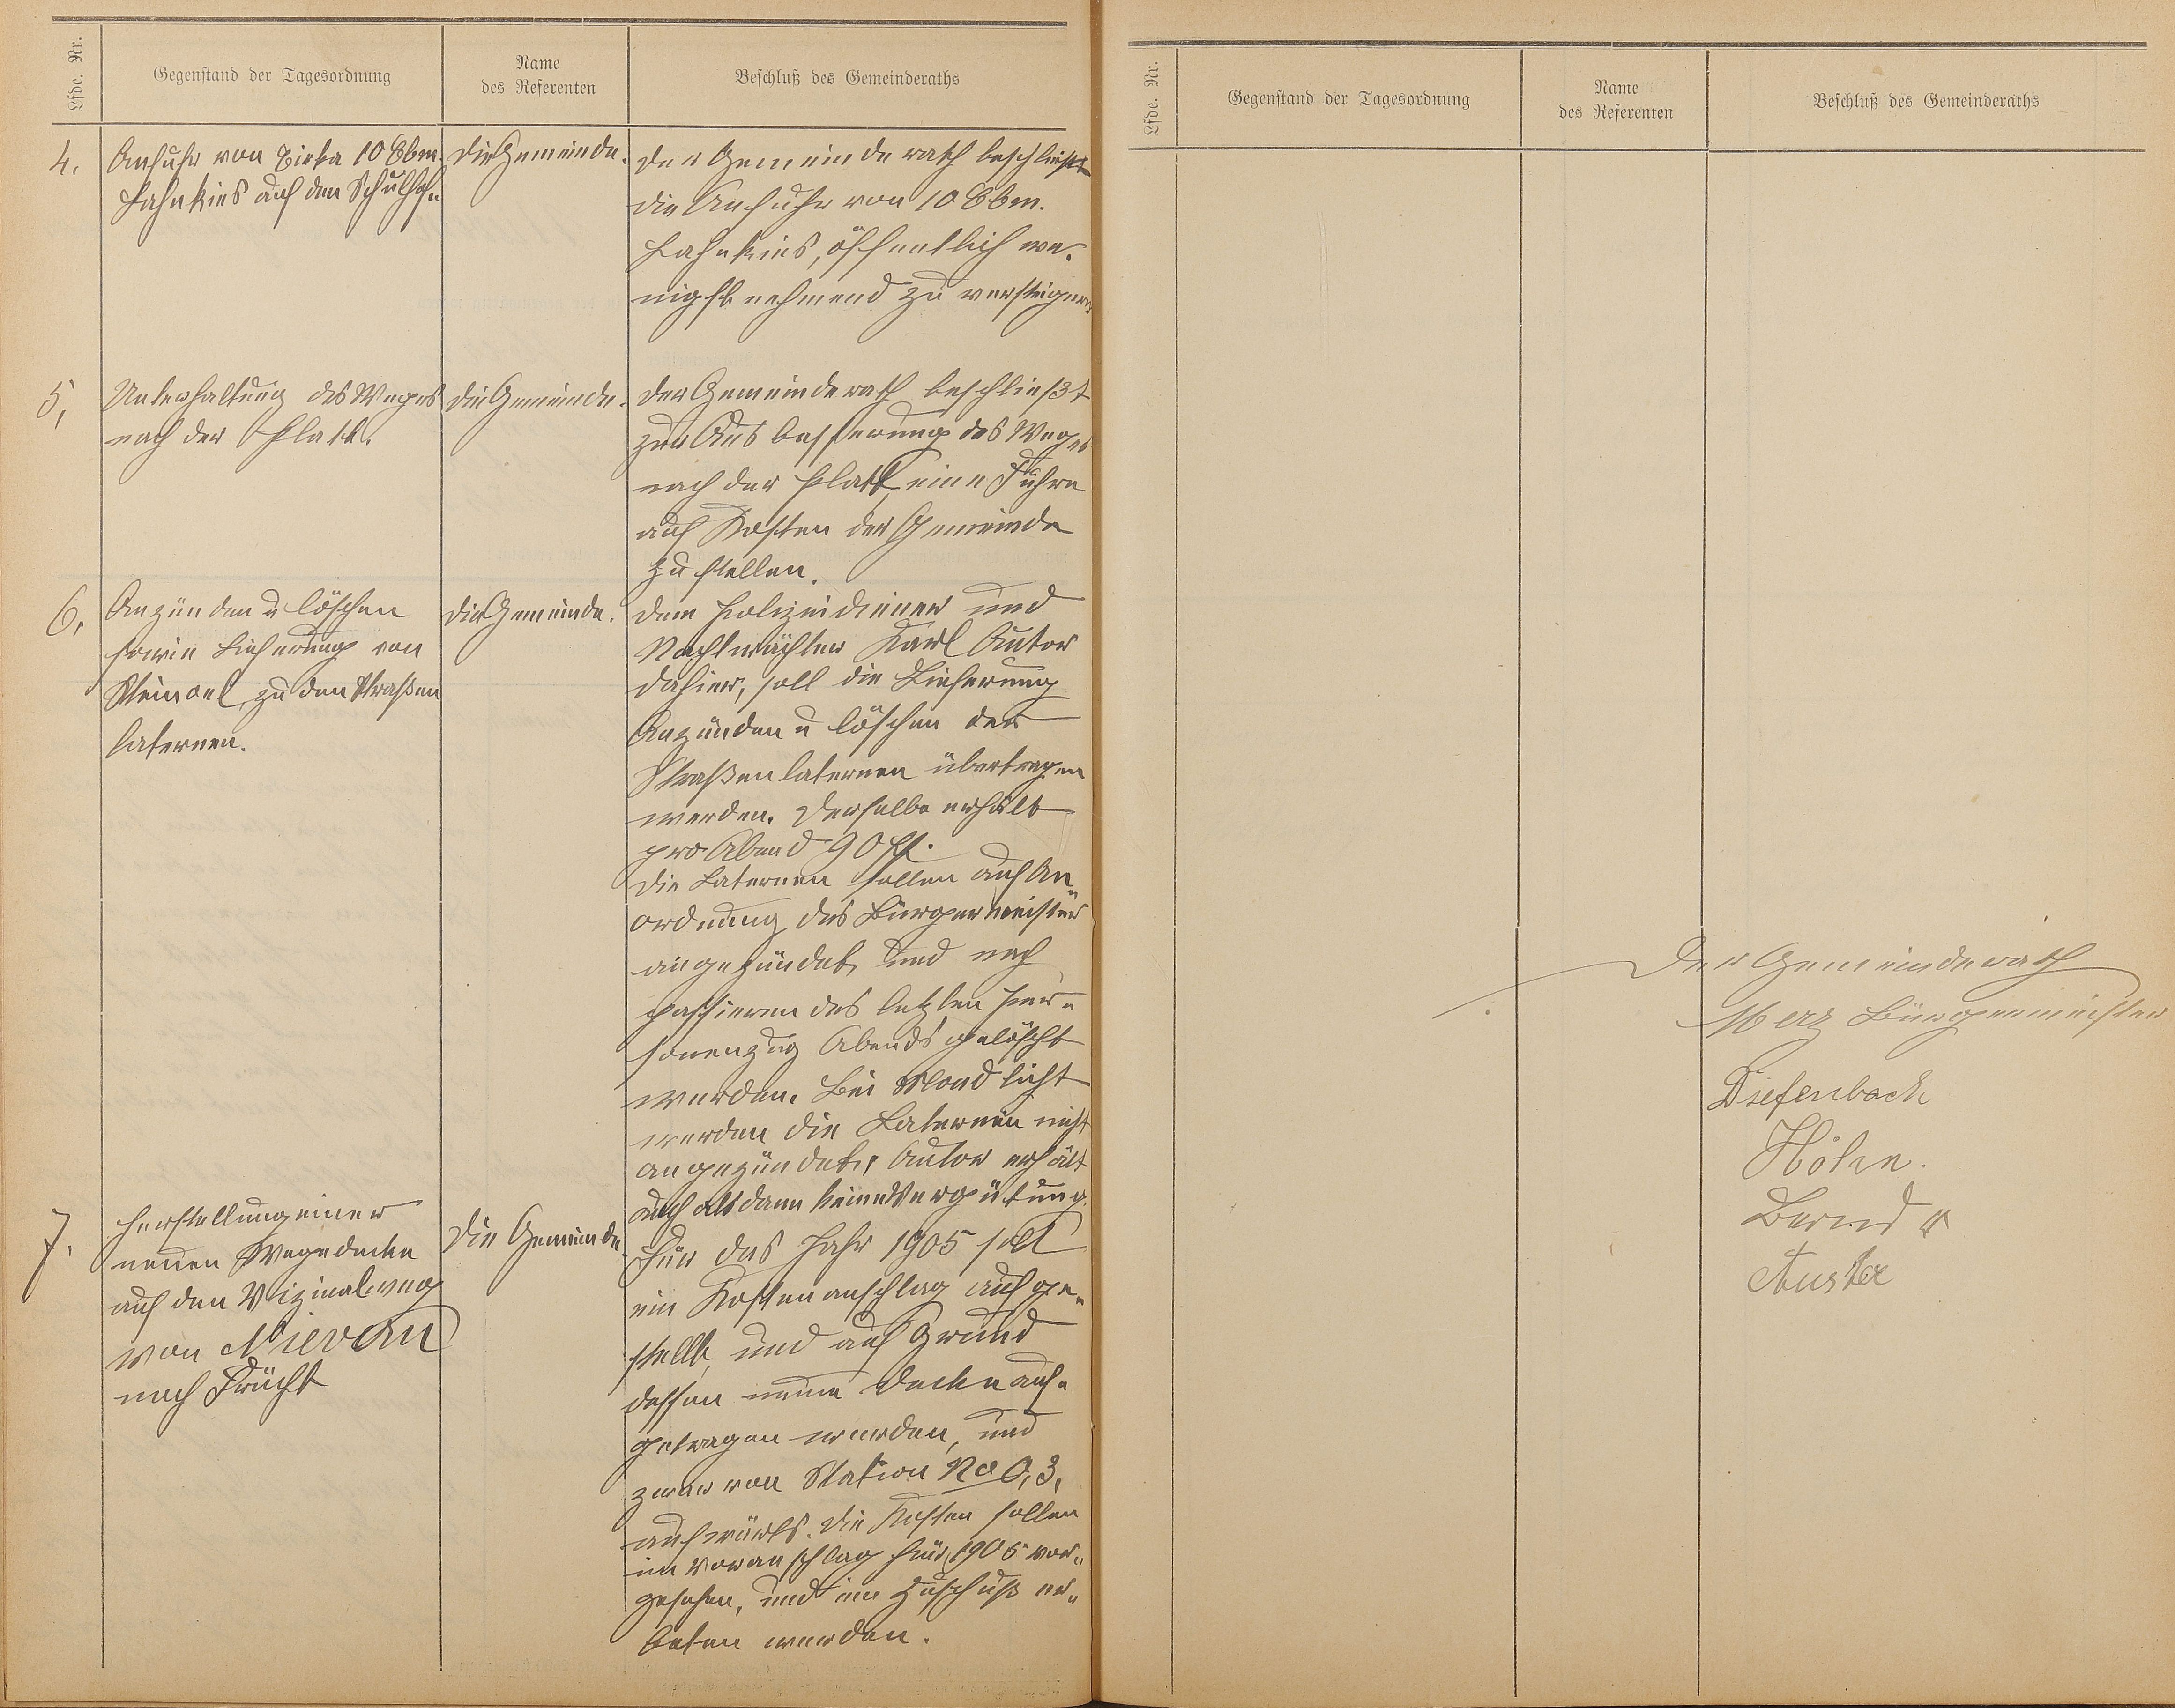 Lfde. Nr.
Gegenstand der Tagesordnung
Name
des Referenten
Beschluß des Gemeinderaths
4.
Anfuhr von zirka 10 Cbm.
Lahnkies auf den Schulhof.
Die Gemeinde.
Der Gemeinderath beschließt
die Anfuhr von 10 Cbm.
Lahnkies, öffentlich we-
nigstnehmend zu versteigern.
5,
Unterhaltung des Weges
nach der Platt.
Die Gemeinde.
Der Gemeinderath beschließt
zur Ausbesserung des Weges
nach der Platt, eine Fuhre
auf Kosten der Gemeinde
zu stellen.
6,
Anzünden u löschen
sowie Lieferung von
Steinoel, zu den Straßen
laternen.
Die Gemeinde.
Dem Polizeidiener und
Nachtwächter Karl Autor
dahier, soll die Lieferung
Anzünden u löschen der
Straßenlaternen übertragen
werden. Derselbe erhält
pro Abend 90 Pf.
Die Laternen sollen auf An-
ordnung des Bürgermeister
angezündet, und nach
passieren des letzten Per-
sonenzug Abends gelöscht
werden. Bei Mondlicht
werden die Laternen nicht
angezündet, Autor erhält
auch alsdann keine Vergütung.
7.
Herstellung einer
neuen Wegedecke
auf den Vizinalweg
von Nievern
nach Frücht
Die Gemeinde
Für das Jahr 1905 soll
ein Kostenanschlag aufge-
stellt, und auf Grund
dessen neue Decke auf-
getragen werden, und
zwar von Station No 0,3,
aufwärts. Die Kosten sollen
im Voranschlag für 1905 vor-
gesehen, und ein Zuschuß er-
beten werden.
Lfde. Nr.
Gegenstand der Tagesordnung
Name
des Referenten
Beschluß des Gemeinderaths
Der Gemeinderath
Merz Bürgermeister
Diefenbach
Höhn.
Bernd